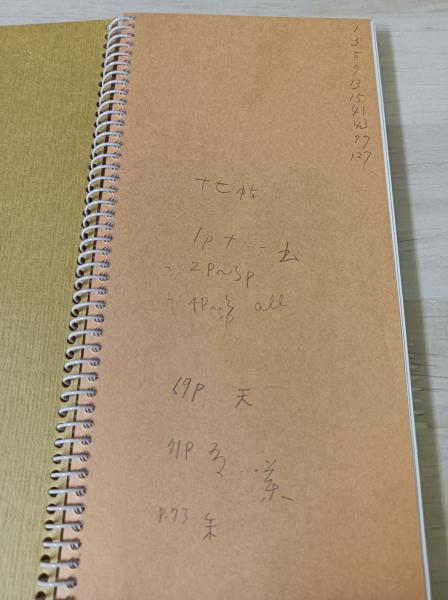 1
3
5
7
13
15
41
43
77
127
十七帖
1p 十…去
2p~3p
4p~ all
69P 天
71P …葉
P.73 朱